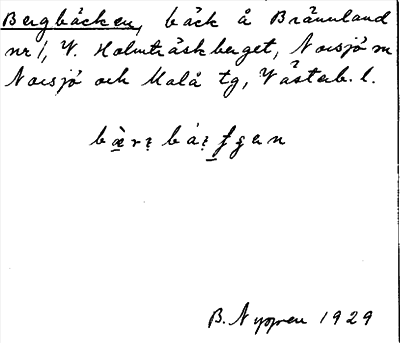 Bergbäcken, bäck å Brännland
nr 1, V. Holmträskberget, Norsjö sn
Norsjö och Malå tg, Västerb. l.
B. Nyppen 1929